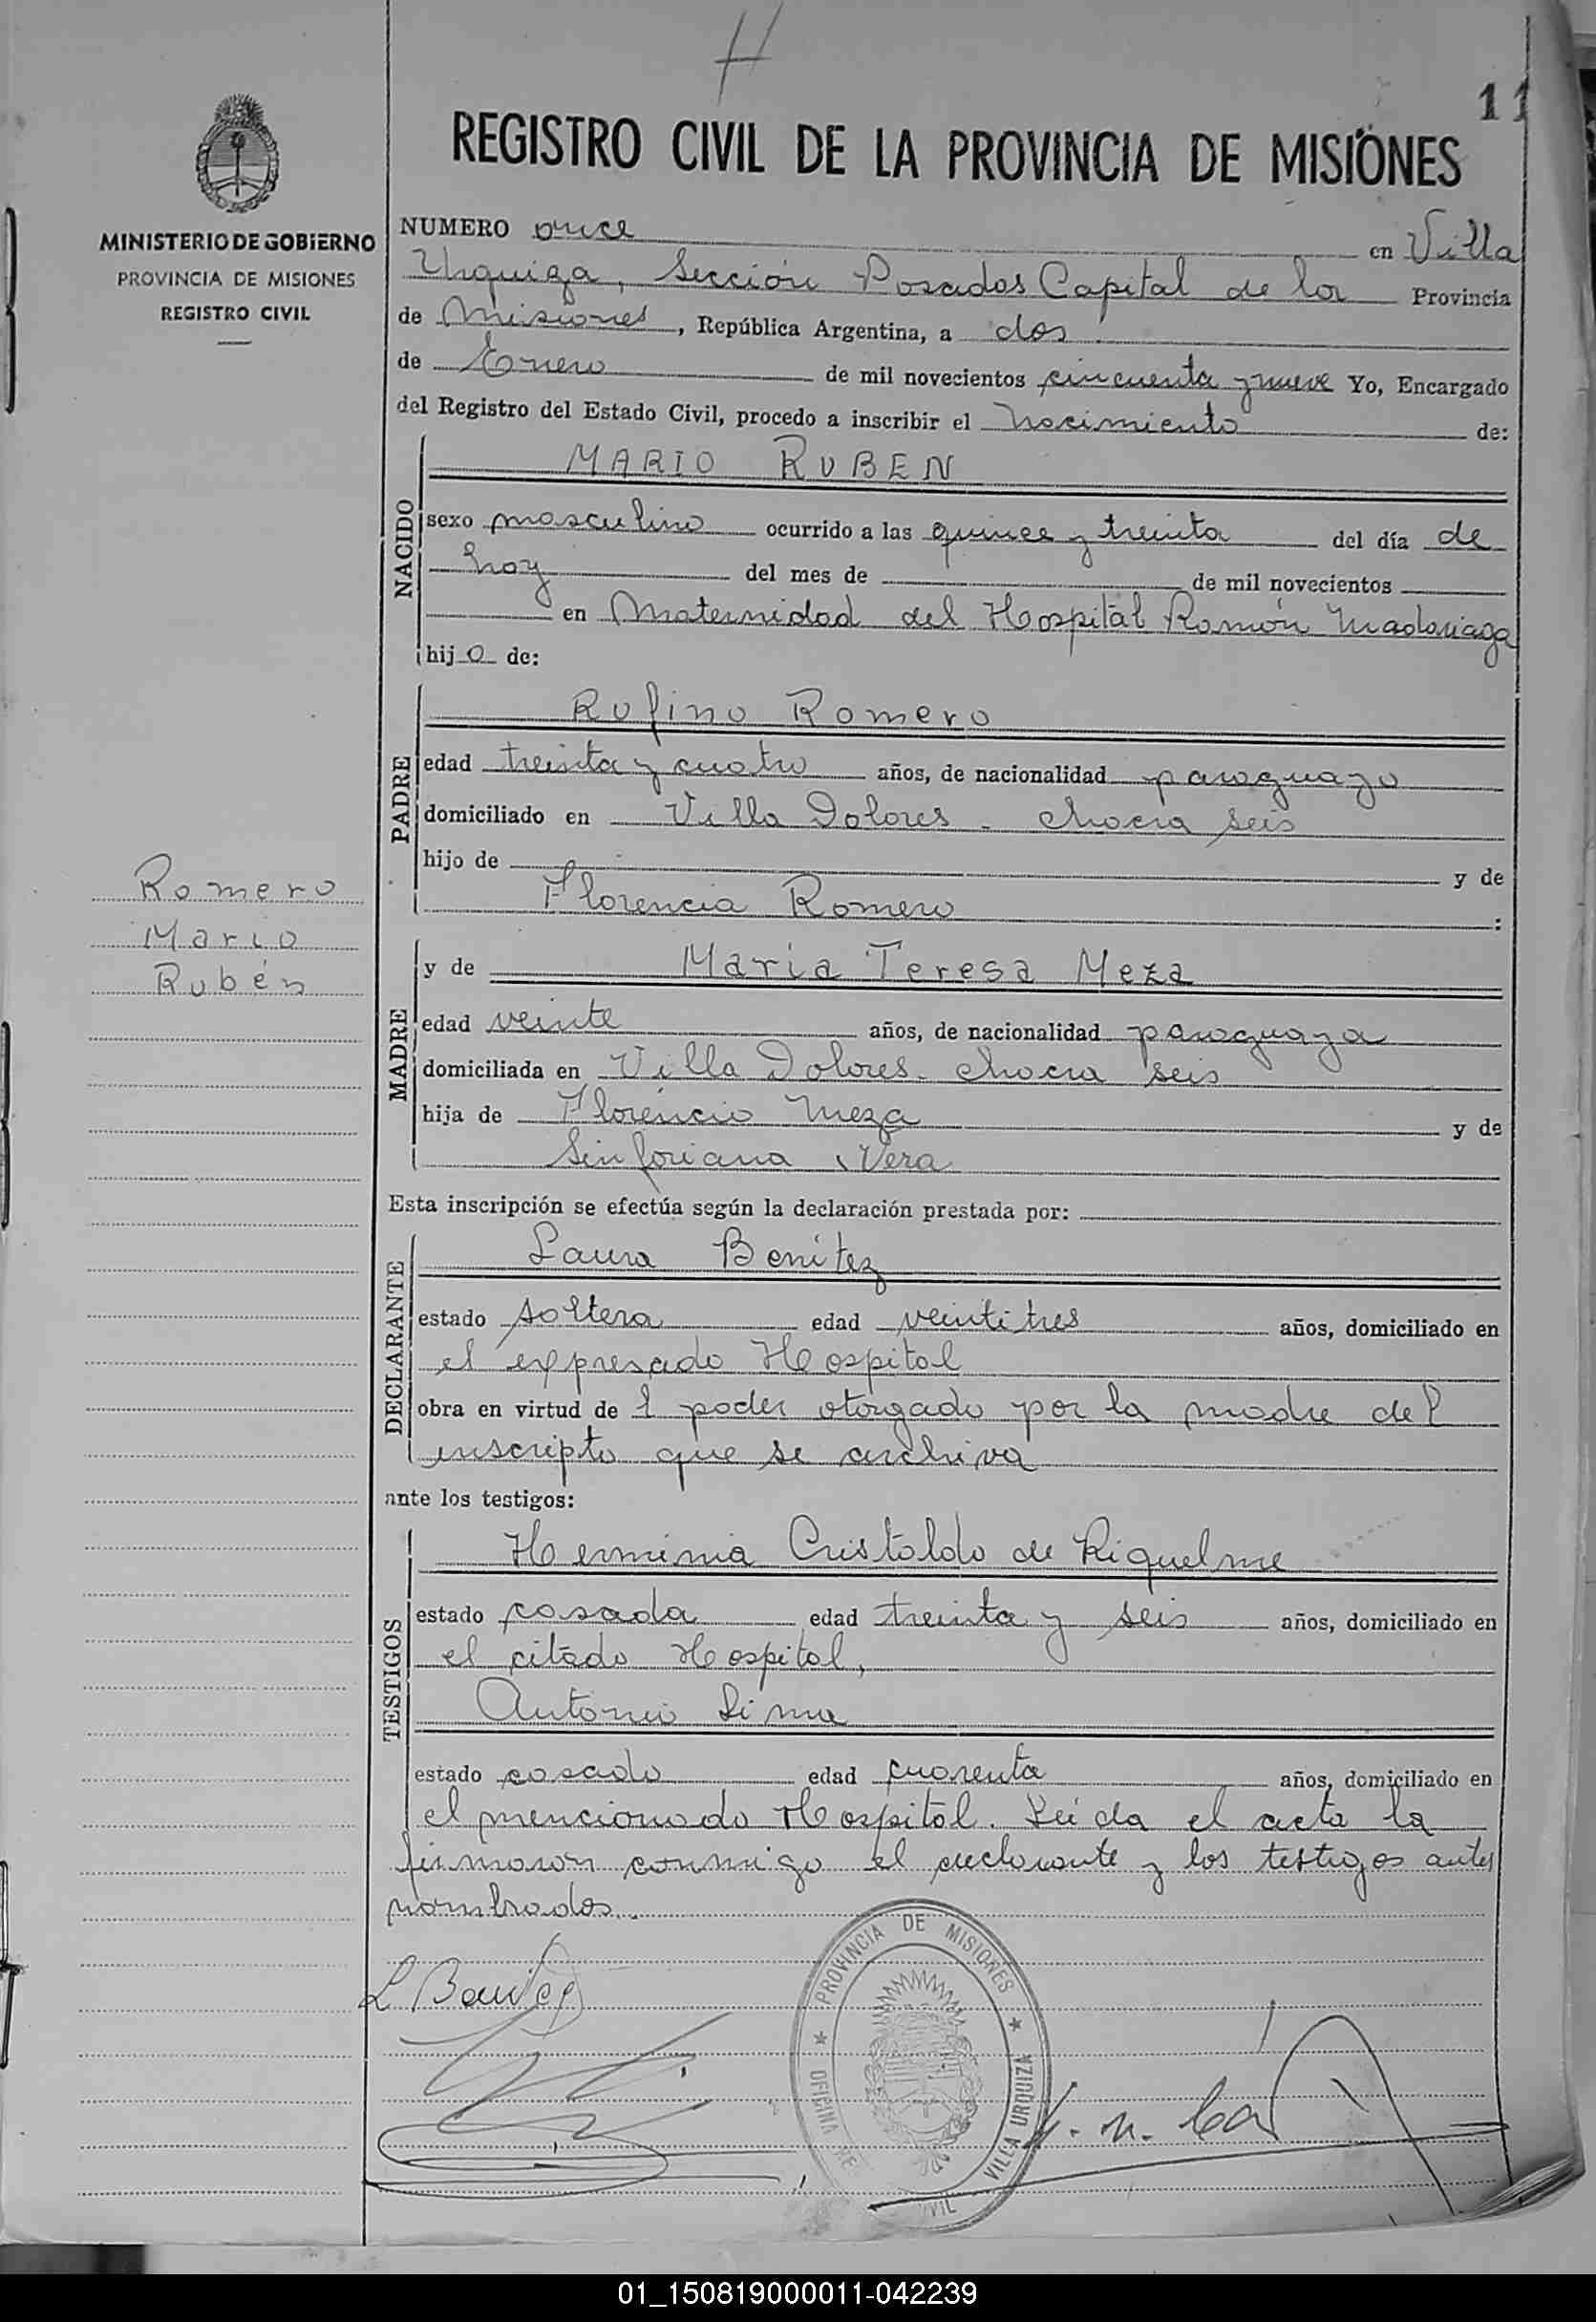 H
11
REGISTRO CIVIL DE LA PROVINCIA DE MISIONES
MINISTERIO DE GOBIERNO
PROVINCIA DE MISIONES
REGISTRO CIVIL
NUMERO once en Villa
Urquiza, Sección Posadas Capital de la Provincia
de Misiones, República Argentina, a dos
de Enero de mil novecientos cincuenta y nueve Yo, Encargado
del Registro del Estado Civil, procedo a inscribir el nacimiento de:
NACIDO
MARIO RUBEN
sexo masculino ocurrido a las quince y treinta del día de
hoy del mes de de mil novecientos
en Maternidad del Hospital Ramón Madariaga
hijo de:
PADRE
Rufino Romero
edad treinta y cuatro años, de nacionalidad paraguayo
domiciliado en Villa Dolores - chacra seis
hijo de y de
Florencia Romero :
Romero
Mario
Rubén
MADRE
y de María Teresa Meza
edad veinte años, de nacionalidad paraguaya
domiciliada en Villa Dolores - chacra seis
hija de Florencio Meza y de
Sinforiana Vera
Esta inscripción se efectúa según la declaración prestada por:
DECLARANTE
Laura Benitez
estado soltera edad veintitres años, domiciliado en
el expresado Hospital
obra en virtud de l poder otorgado por la madre del
inscripto que se archiva
ante los testigos:
TESTIGOS
Herminia Cristaldo de Riquelme
estado casada edad treinta y seis años, domiciliado en
el citado Hospital,
Antonio Lima
estado casado edad cuarenta años, domiciliado en
el mencionado Hospital. Leída el acta la
firmaron conmigo el declarante y los testigos antes
nombrados.
L Benitez
PROVINCIA DE MISIONES
OFICINA VILLA URQUIZA
01_150819000011-042239